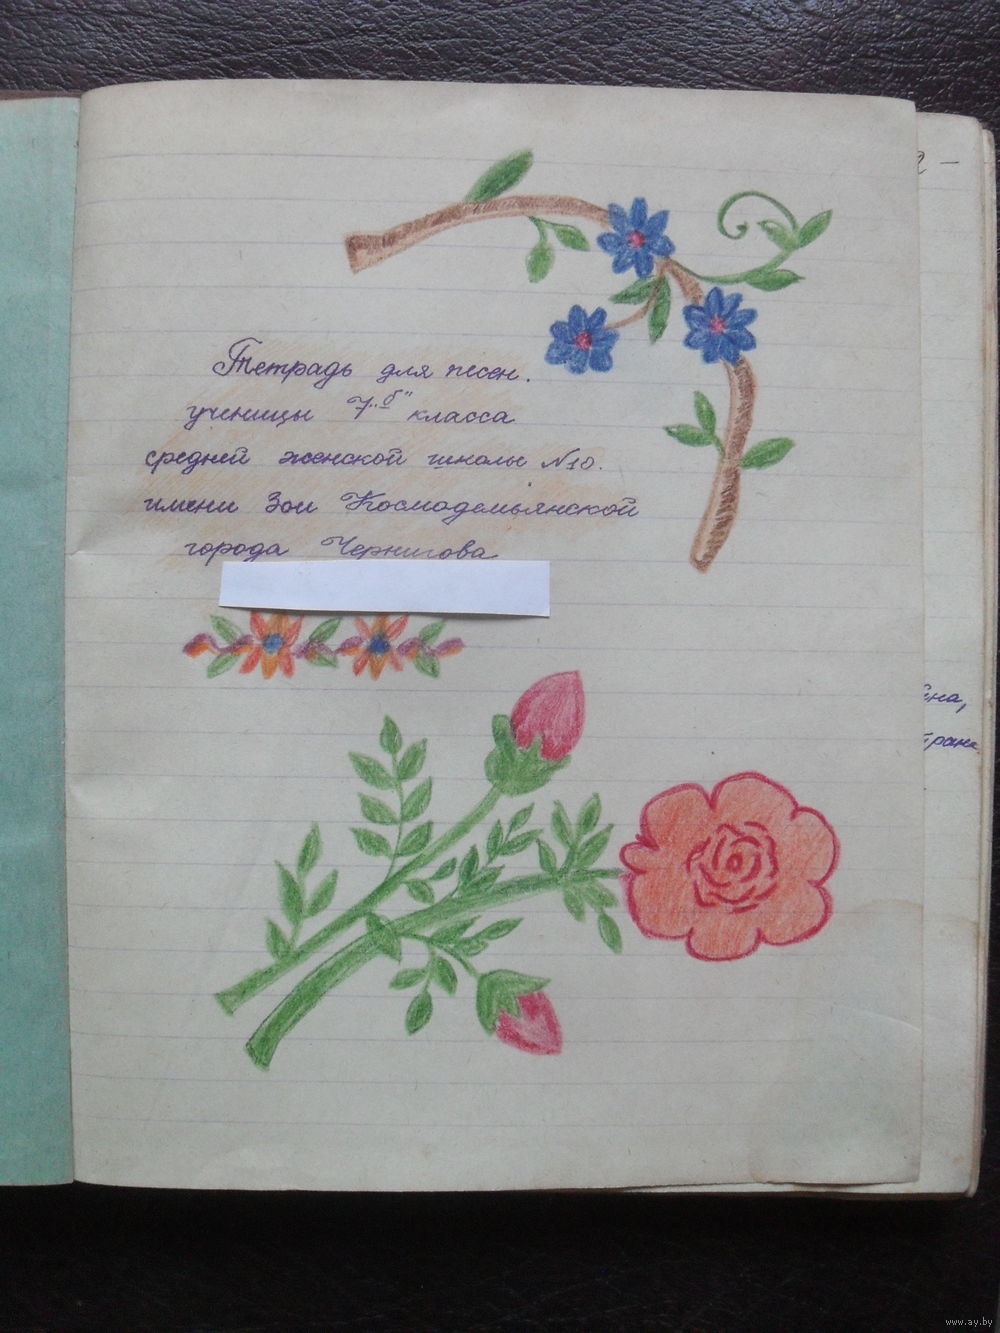 Тетрадь для песен.
ученицы 7 "б" класса
средней женской школы №10.
имени Зои Космодемьянской
города Чернигова
www.ay.by